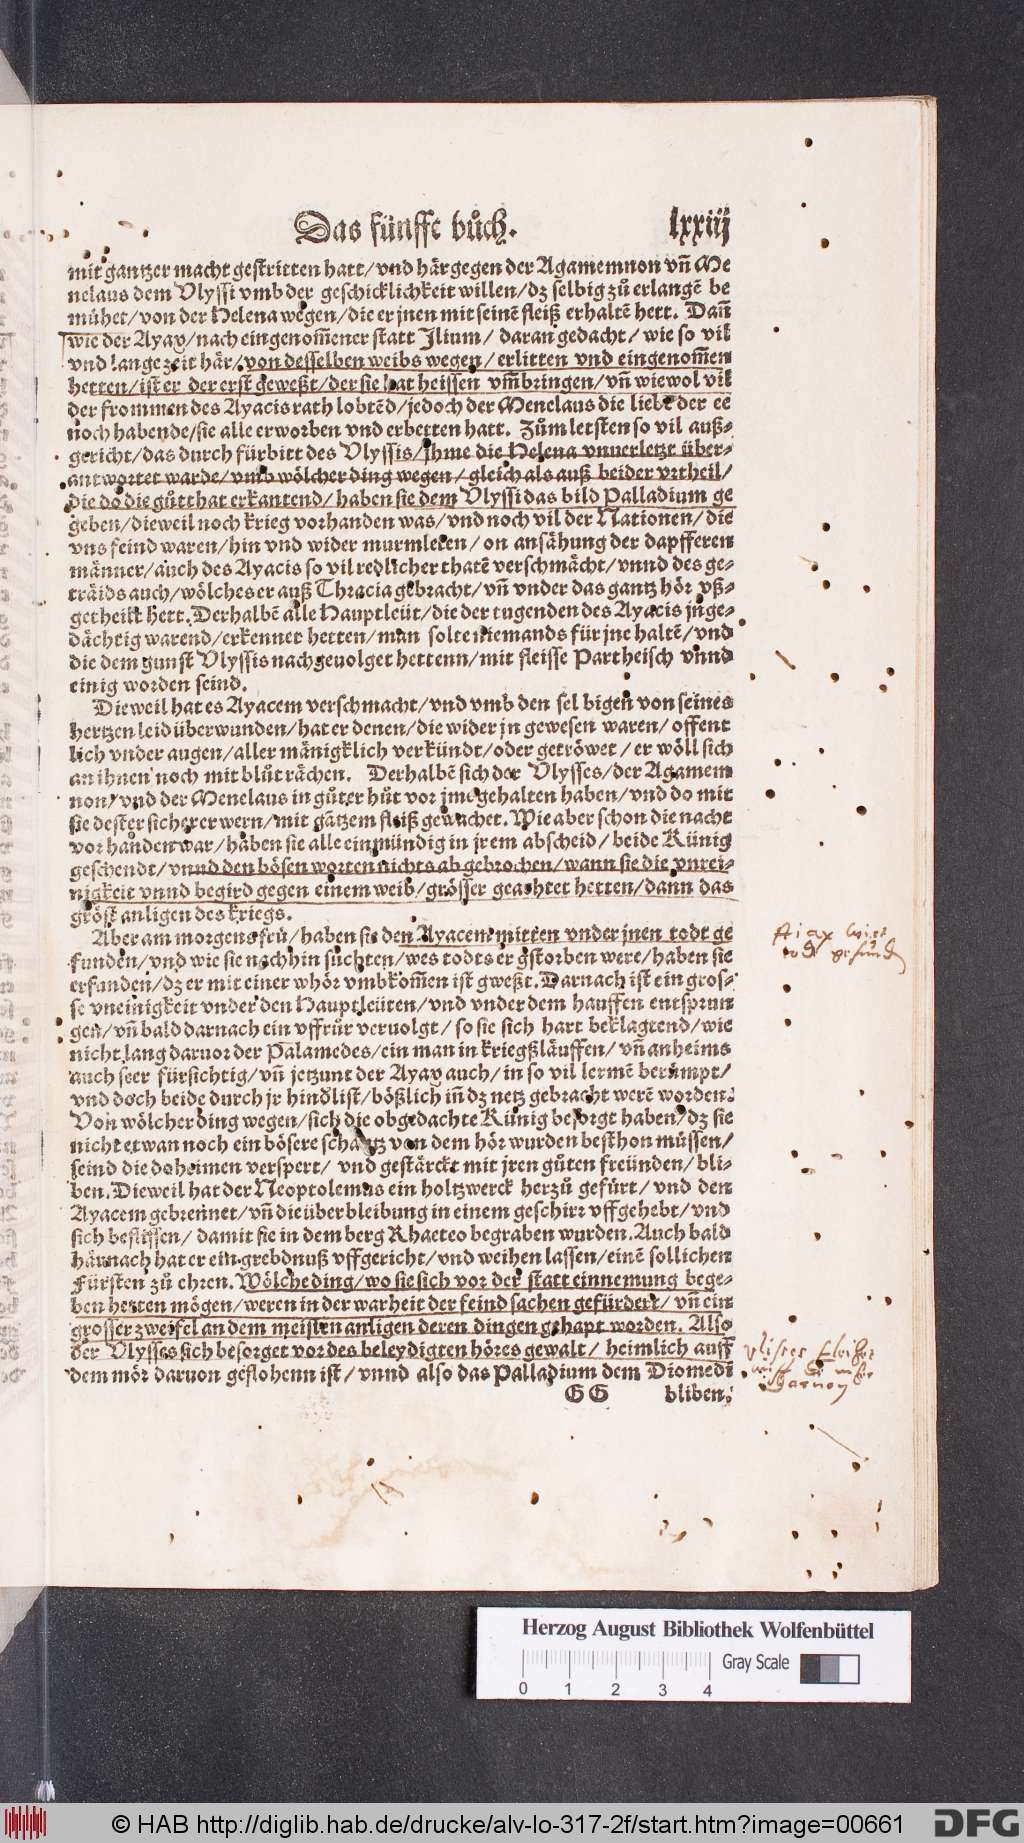 Das fünfft bůch. lxxiiij
mit gantzer macht gestritten hatt/vnd här gegen der Agamemnon vn̄ Me
nelaus dem Vlyssi vmb der geschicklichkeit willen/dz selbig zů erlangē be
můhet/von der Helena wegen/die er jnen mit seinē fleiß erhaltē hett. Dañ
wie der Ayax/nach eingenom̄ener statt Jlium/ daran gedacht/ wie so vil
vnd lange zeit här/von desselben weibs wegen/ erlitten vnd eingenom̄en
hetten/ist er der erst geweßt/der sie hat heissen vm̄bringen/vn̄ wiewol vil
der frommen des Ayacis rath lobtēd/jedoch der Menelaus die liebe der ee
noch habende/sie alle erworben vnd erbetten hatt. Zům letsten so vil auß-
gericht/das durch fürbitt des Vlyssis/Jhme die Helena vnuerletzt über-
antwortet warde/vmb wölcher ding wegen/gleich als auß beider vrtheil/
die do die gůtthat erkantend/haben sie dem Vlyssi das bild Palladium ge
geben/dieweil noch krieg vorhanden was/vnd noch vil der Nationen/die
vns feind waren/hin vnd wider murmleten/on ansähung der dapfferen
männer/auch des Ayacis so vil redlicher thatē verschmächt/vnnd des ge-
träids auch/wölches er auß Thracia gebracht/vn̄ vnder das gantz hör vß-
getheilt hett. Derhalbē alle Hauptleüt/die der tugenden des Ayacis jnge-
dächtig warend/erkennet hetten/man solte niemands für jne haltē/vnd
die dem gunst Vlyssis nachgeuolget hettenn/mit fleisse Partheisch vnnd
einig worden seind.
Dieweil hat es Ayacem verschmacht/vnd vmb den sel bigen von seines
hertzen leid überwunden/hat er denen/die wider jn gewesen waren/offent
lich vnder augen/aller mänigklich verkündt/oder getröwet/er wöll sich
an ihnen noch mit blůt rächen. Derhalbē sich der Vlysses/der Agamem
non/vnd der Menelaus in gůter hůt vor jme gehalten haben/vnd do mit
sie dester sicherer wern/mit gātzem fleiß gewachet. Wie aber schon die nacht
vorhanden war/haben sie alle einmündig in jrem abscheid/beide Künig
geschendt/vnnd den bösen worten nichts abgebrochen/wann sie die vnrei-
nigkeit vnnd begird gegen einem weib/grösser geachtet hetten/dann das
gröst anligen des kriegs.
Aber am morgens frů/haben sie den Ayacem mitten vnder jnen todt ge
funden/vnd wie sie nachhin sůchten/wes todts er gstorben were/haben sie
erfunden/dz er mit einer whör vmbkom̄en ist gweßt. Darnach ist ein gros-
se vneinigkeit vnder den Hauptleüten/vnd vnder dem hauffen entsprun
gen/vn̄ bald darnach ein vffrůr veruolgt/ so sie sich hart beklagtend/wie
nicht lang daruor der Palamedes/ein man in kriegßläuffen/vn̄ anheims
auch seer fürsichtig/vn̄ jetzunt der Ayax auch/in so vil lermē berůmpt/
vnd doch beide durch jr hindlist/bößlich in̄ dz netz gebracht werē worden.
Von wölcher ding wegen/sich die obgedachte Künig besorgt haben/dz sie
nicht etwan noch ein bösere schantz von dem hör wurden besthon müssen/
seind die doheimen verspert/ vnd gestärckt mit jren gůten freünden/ bli-
ben. Dieweil hat der Neoptolemus ein holtzwerck herzů gefürt/ vnd den
Ayacem gebrennet/vn̄ die überbleibung in einem geschirr vffgehebt/vnd
sich beflissen/ damit sie in dem berg Rhaeteo begraben wurden. Auch bald
härnach hat er ein grebdnuß vffgericht/vnd weihen lassen/einē sollichen
Fürsten zů ehren. Wölche ding/wo sie sich vor der statt einnemung bege-
ben hetten mögen/weren in der warheit der feind sachen gefürdert/vn̄ ein
grosser zweifel an dem meisten anligen deren dingen gehapt worden. Also
der Vlysses sich besorget vor des beleydigten höres gewalt/ heimlich auff
dem mör daruon geflohenn ist/ vnnd also das Palladium dem Diomedi
GG bliben.
Aiax wirt
tod gefund
Vlisses fleühet
daruon
Herzog August Bibliothek Wolfenbüttel
Gray Scale
0 1 2 3 4
© HAB http://diglib.hab.de/drucke/alv-lo-317-2f/start.htm?image=00661
DFG